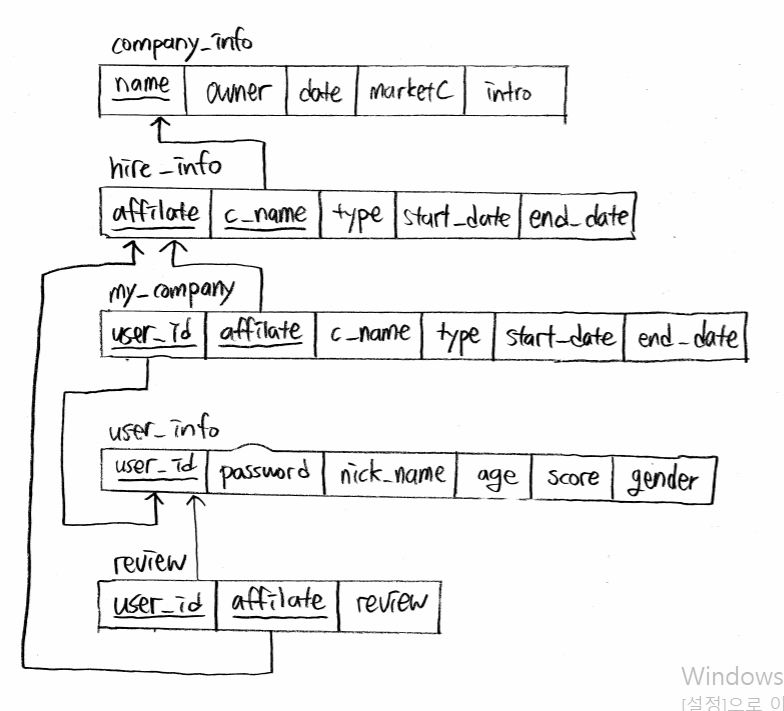 company_info
name owner date marketC intro
hire_info
affilate c_name type start_date end_date
my_company
user_id affilate c_name type start_date end_date
user_info
user_id password nick_name age score gender
review
user_id affilate review
Windows
[설정]으로 이